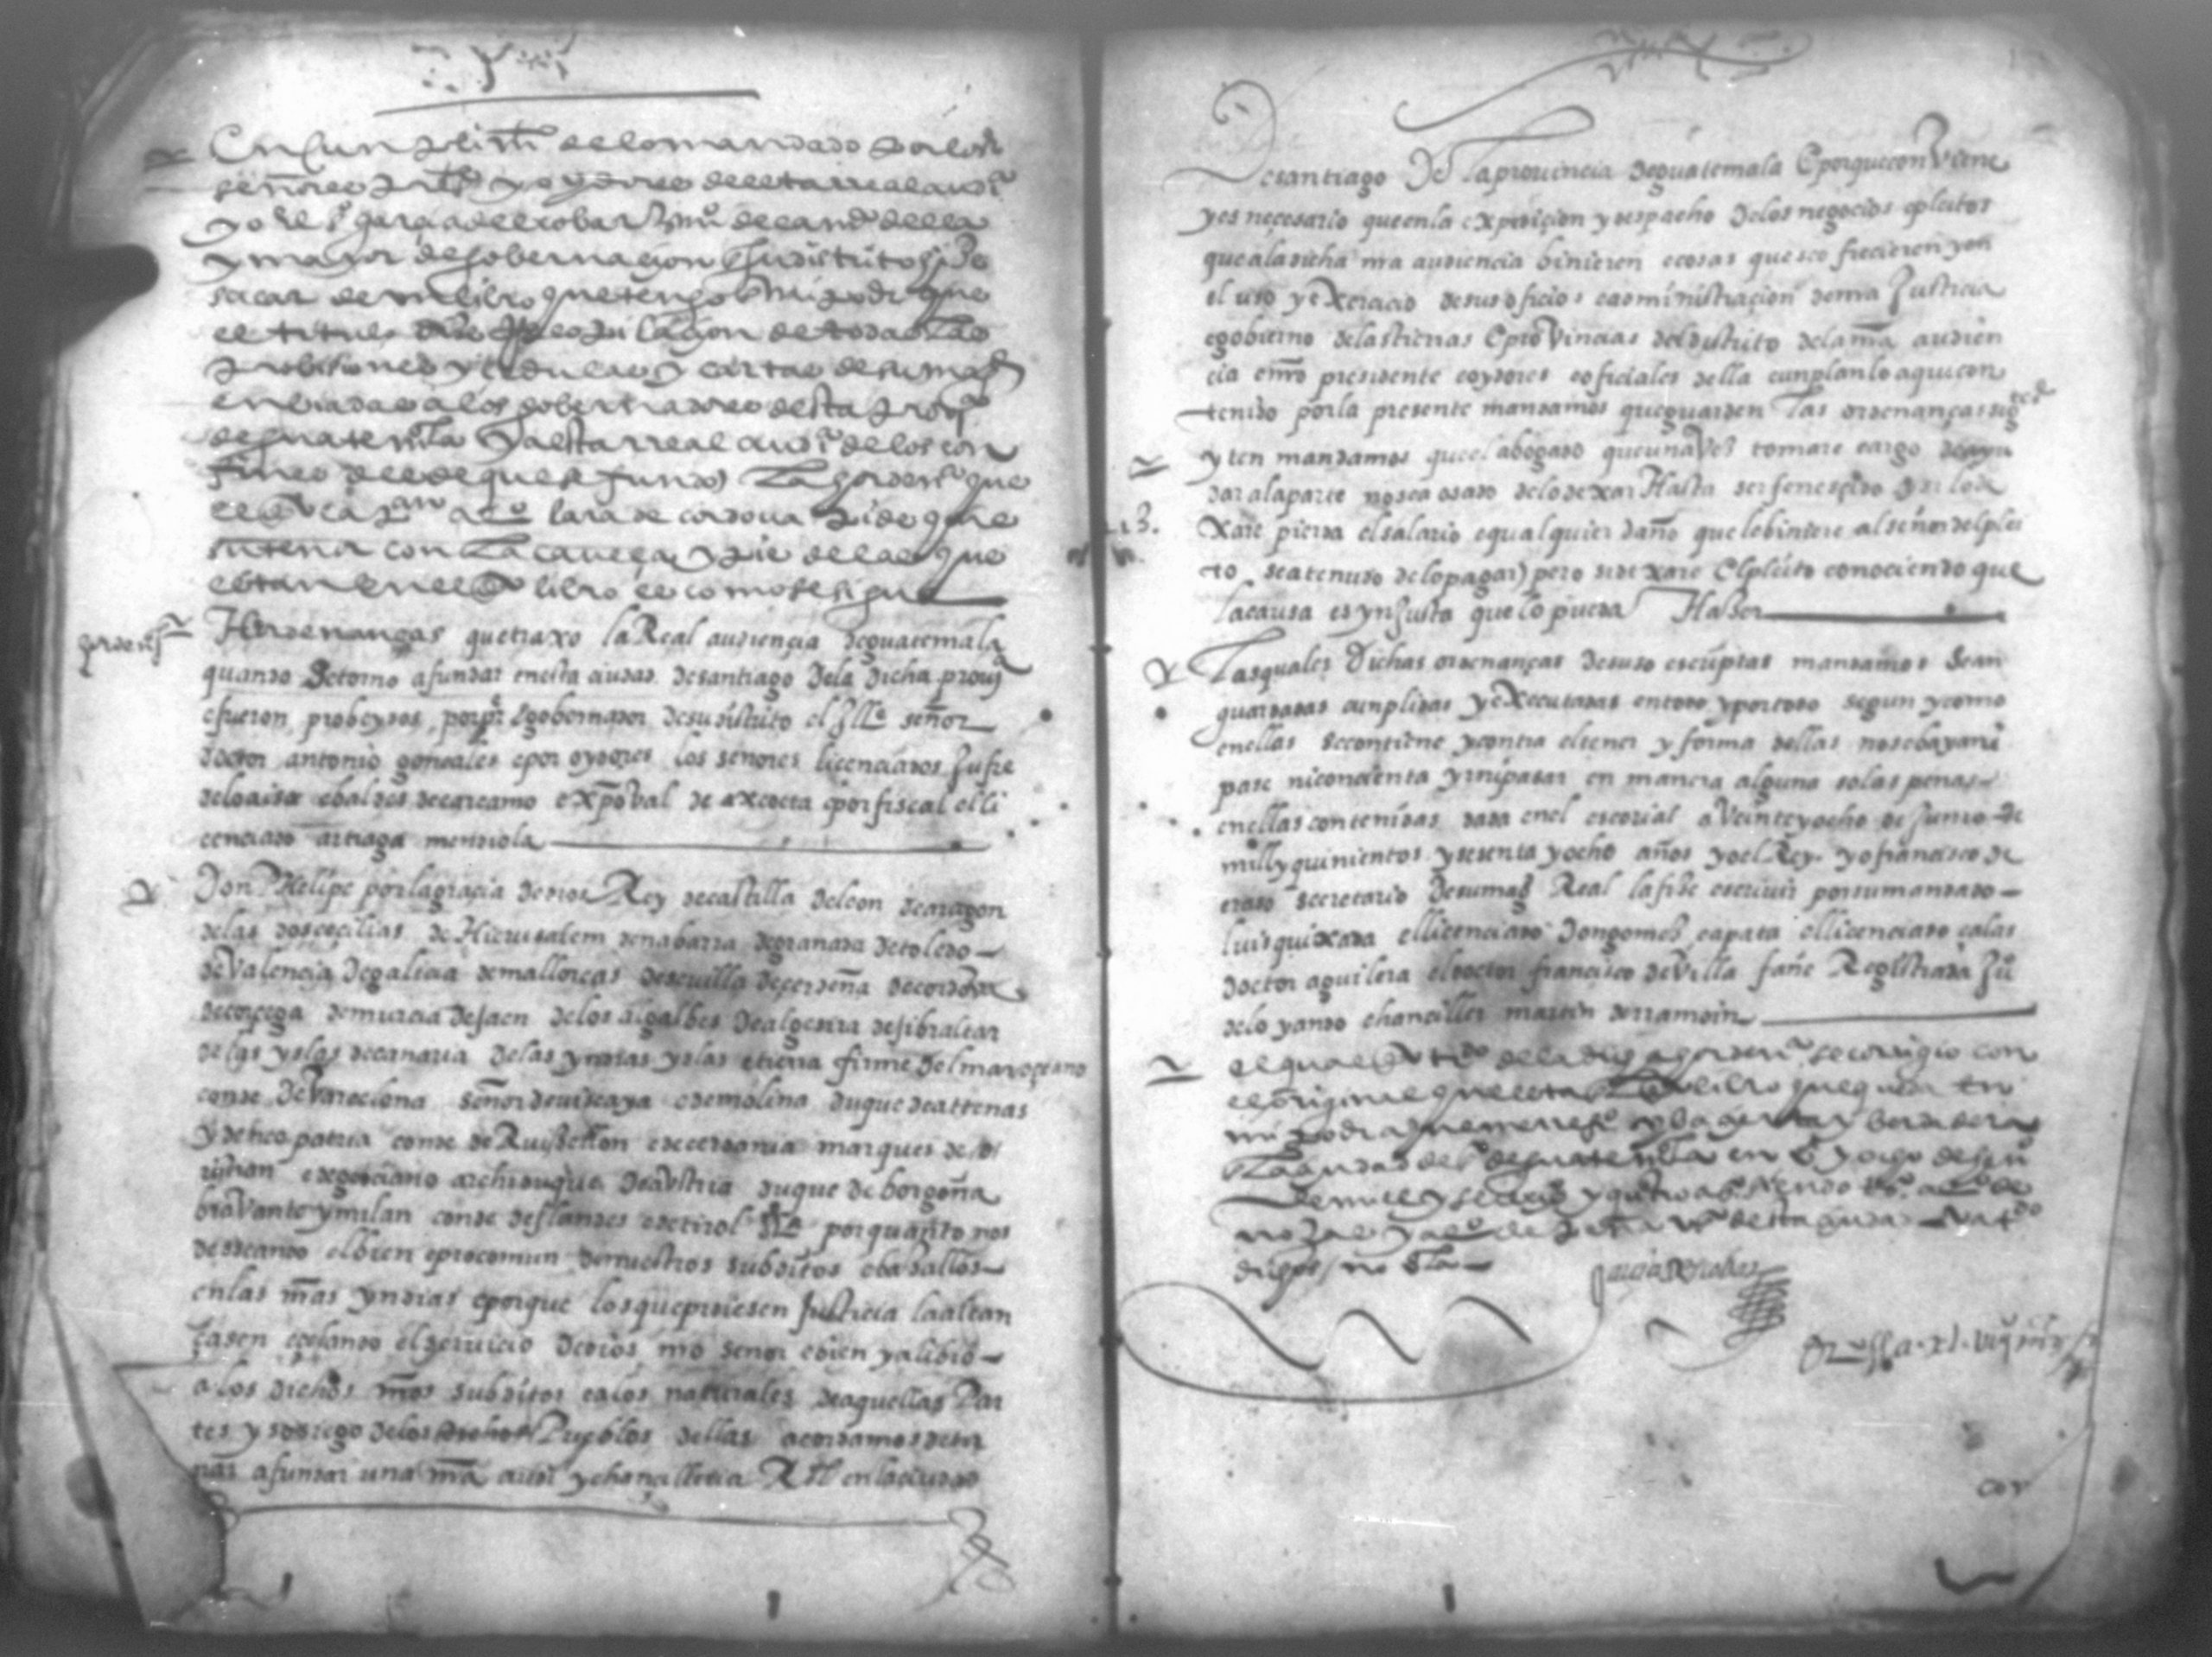 En cunplimi° de lo mandado por los
señores presi° y oydores desta rreal audi°
yo garcia de escobar de cam° della
y mayor de gobernaçion en su distrito hize
sacar de un libro que tengo en mi poder que
el titulo dize rrecopilaçion de todas las
probisiones y cedulas y cartas de su magd
enbiadas a los gobernadores desta prouª
de guatemala y a esta rreal audiª de los con
fines desde que se fundo la hordenª que
el dho lara de cordoua pide que
su tenor con la caueça y pie de las que
estan en el dho libro es como se sigue
Hordenanças que traxo la Real audiençia de guatemala
quando se torno a fundar en esta ciudad de santiago de la dicha prouiª
e fueron probeydos por pr e gobernador de su distrito el Yllᵉ señor
doctor antonio gonsales e por oydores los señores licenciados Jufre
de loaisa e baldes de carcamo e xpobal de axcoeta e por fiscal el li
cenciado artiaga mendiola
Don Phelipe por la gracia de dios Rey de castilla de leon de aragon
de las dos cecilias de Hierusalem de nabarra de granada de toledo
de Valencia de galicia de mallorcas de seuilla de cerdeña de cordoua
de corcega de murcia de Jaen de los algalbes de algesira de jibraltar
de las yslas de canaria de las yndias yslas e tierra firme del mar oçeano
conde de Varcelona señor de uiscaya e de molina duque de attenas
y de neopatria conde de Ruisellon e de cerdania marques de
ristan e de gociano archiduque de austria duque de borgoña
bravante y milan conde de flandes e de tirol &ª por quanto nos
deseando el bien e procomun de nuestros subditos e basallos
en las nras yndias e porque los que pidiesen Justicia la alcan
çasen e zelando el seruicio de dios nro señor e bien y alibio
a los dichos nros subditos e a los naturales de aquellas Par
tes y sosiego de los dichos Pueblos dellas acordamos de tor
nar a fundar una nra audiª y chancilleria Rl en la ciudad
de santiago De la prouincia de guatemala E porque conviene
y es necesario que en la expedicion y despacho de los negocios e pleitos
que a la dicha nra audiencia binieren e cosas que se o frecieren y en
el uso y exercicio de sus oficios e administraçion de nra Justicia
e gobierno de las tierras e provincias del distrito de la nra audien
cia e nro presidente e oydores e oficiales della cunplan lo aqui con
tenido por la presente mandamos que guarden las ordenanças sigtes
yten mandamos que el abogado que una Vez tomare cargo de ayu
dar a la parte no sea osado de lo dexar Hasta ser feneçido y si lo de
xare pierda el salario e qualquier daño que le biniere al señor del plei
to sea tenudo de lo pagar pero si dexare el pleito conociendo que
la causa es ynjusta que lo pueda Hazer
Las quales Dichas ordenanças de suso escriptas mandamos sean
guardadas cunplidas y executadas en todo y por todo segun y como
en ellas se contiene y contra el tenor y forma dellas no se baya ni
pase ni consienta yr ni pasar en manera alguna so las penas
en ellas contenidas dada en el escorial a Veinte y ocho de Junio de
mill y quinientos y sesenta y ocho años yo el Rey yo francisco de
eraso secretario de su magd Real la fize escriuir por su mandado
luis quixada el licenciado don gomes capata el licenciado calas
doctor aguilera el doctor francisco de Villa fañe Registrada Juº
de loyando chanciller martin de rramoin
el qual dho de la dha hordenª se corrigio con
el original que esta en el dho libro que queda en
mi poder a que me refiº y ba cierto y berdadero
en la çiudad de sº de guatemala en de
de mill y seisçiºs y quatro aºs siendo tºs de